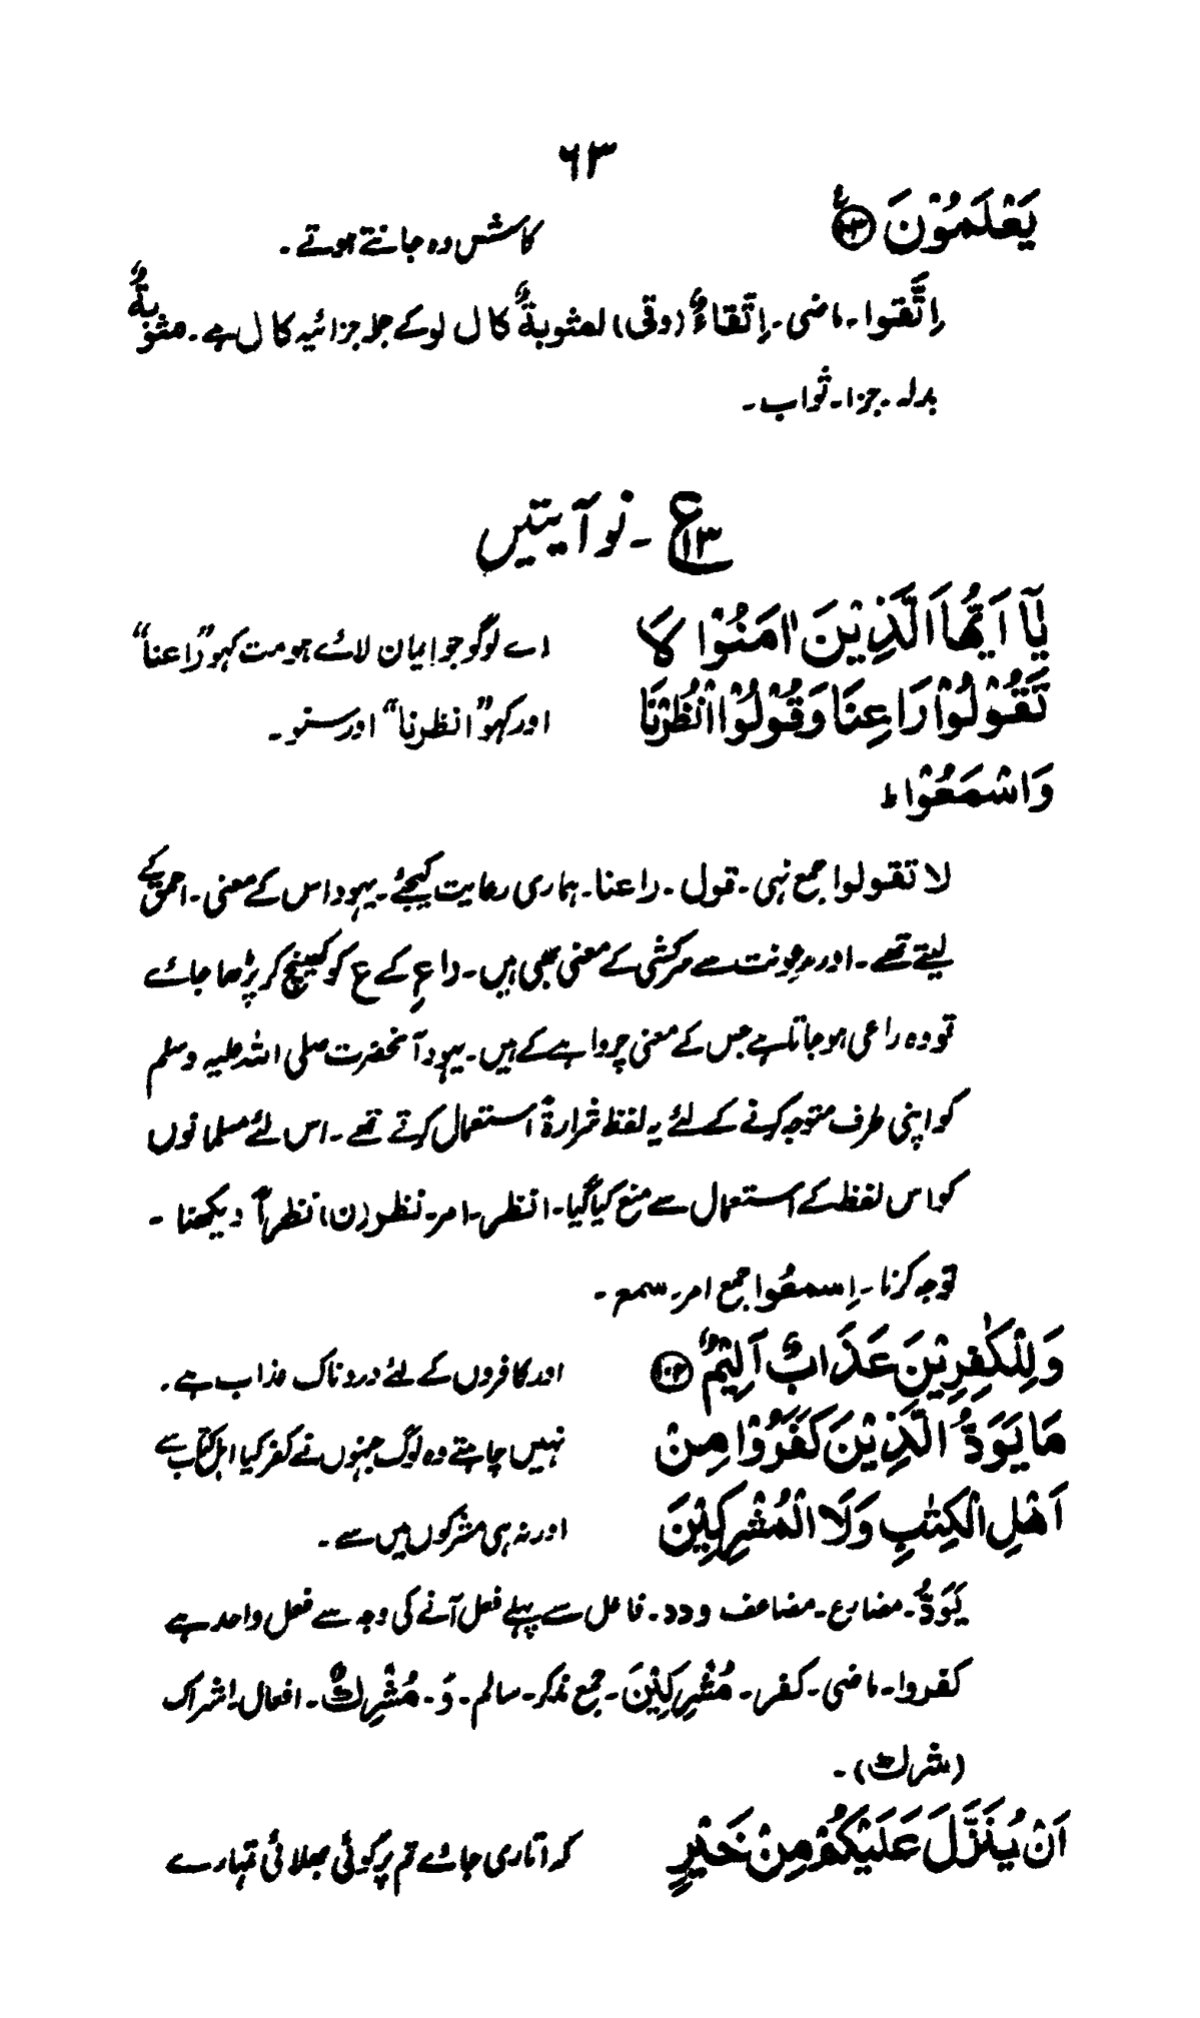 ۶۳
یَعْلَمُوْنَ ﴿۱۰۳﴾ ع
کاش وہ جانتے ہوتے ۔
اِتَّقوا ۔ ماضی ۔ اِتقاءٌ (وقی) لمثوبةٌ کا ل لو کے جملہ جزائیہ کا ل ہے ۔ مثوبةٌ
بدلہ ۔ جزا ۔ ثواب ۔
ع ۱۳ ۔ نو آیتیں
یٰۤا اَیُّهَا الَّذِیْنَ اٰمَنُوْا لَا
اے لوگو جو ایمان لائے ہو مت کہو ”راعنا“
تَقُوْلُوْا رَاعِنَا وَقُوْلُوا انْظُرْنَا
اور کہو ”انظرنا“ اور سنو ۔
وَاسْمَعُوْا ط
لا تقولوا جمع نہی ۔ قول ۔ راعنا ۔ ہماری رعایت کیجئے ۔ یہود اس کے معنی ۔ احمق کے
لیتے تھے ۔ اور رعونت سے سرکشی کے معنی بھی ہیں ۔ راعِ کے ع کو کھینچ کر پڑھا جائے
تو وہ راعی ہو جاتا ہے جس کے معنی چرواہے کے ہیں ۔ یہود آنحضرت صلی اللہ علیہ وسلم
کو اپنی طرف متوجہ کرنے کے لئے یہ لفظ شرارةً استعمال کرتے تھے ۔ اس لئے مسلمانوں
کو اس لفظ کے استعمال سے منع کیا گیا ۔ انظر ۔ امر ۔ نظر (ن) نظراً دیکھنا ۔
توجہ کرنا ۔ اِسمعُوا جمع امر ۔ سمع ۔
وَلِلْکٰفِرِیْنَ عَذَابٌ اَلِیْمٌ ﴿۱۰۴﴾
اور کافروں کے لئے درد ناک عذاب ہے ۔
مَا یَوَدُّ الَّذِیْنَ کَفَرُوْا مِنْ
نہیں چاہتے وہ لوگ جنہوں نے کفر کیا اہل کتاب سے
اَهْلِ الْکِتٰبِ وَلَا الْمُشْرِکِیْنَ
اور نہ ہی مشرکوں میں سے ۔
یَوَدُّ ۔ مضارع ۔ مضاعف ودد ۔ فاعل سے پہلے فعل آنے کی وجہ سے فعل واحد ہے
کفروا ۔ ماضی ۔ کفر ۔ مُشْرِکِیْنَ ۔ جمع مذکر ۔ سالم ۔ وَ ۔ مُشْرِكٌ ۔ افعال اِشراک
(شرك) ۔
اَنْ یُّنَزَّلَ عَلَیْکُمْ مِنْ خَیْرٍ
کہ اتاری جائے تم پر کوئی بھلائی تمہارے